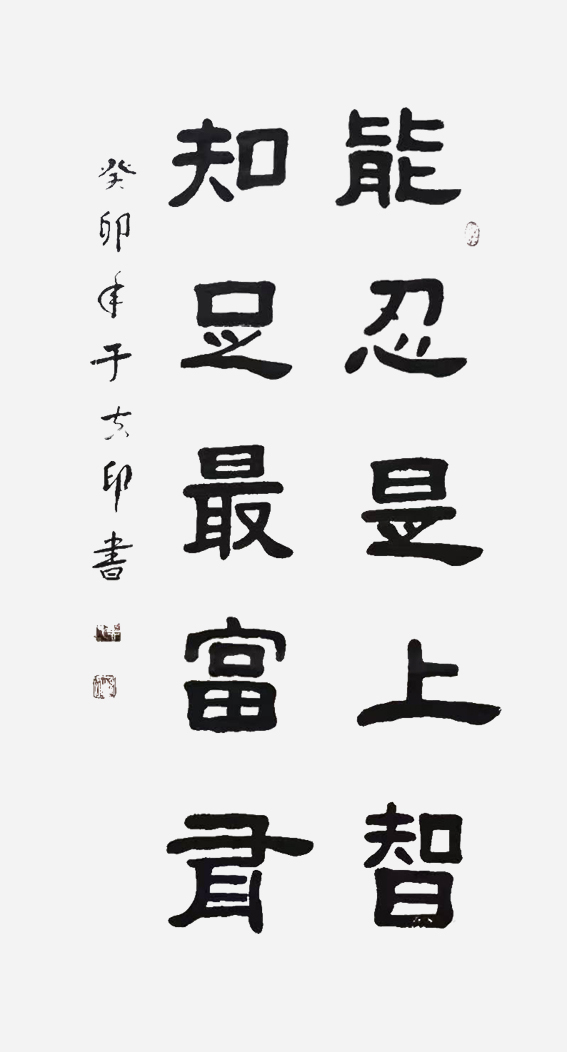 能忍是上智
知足最富有
癸卯年于印書